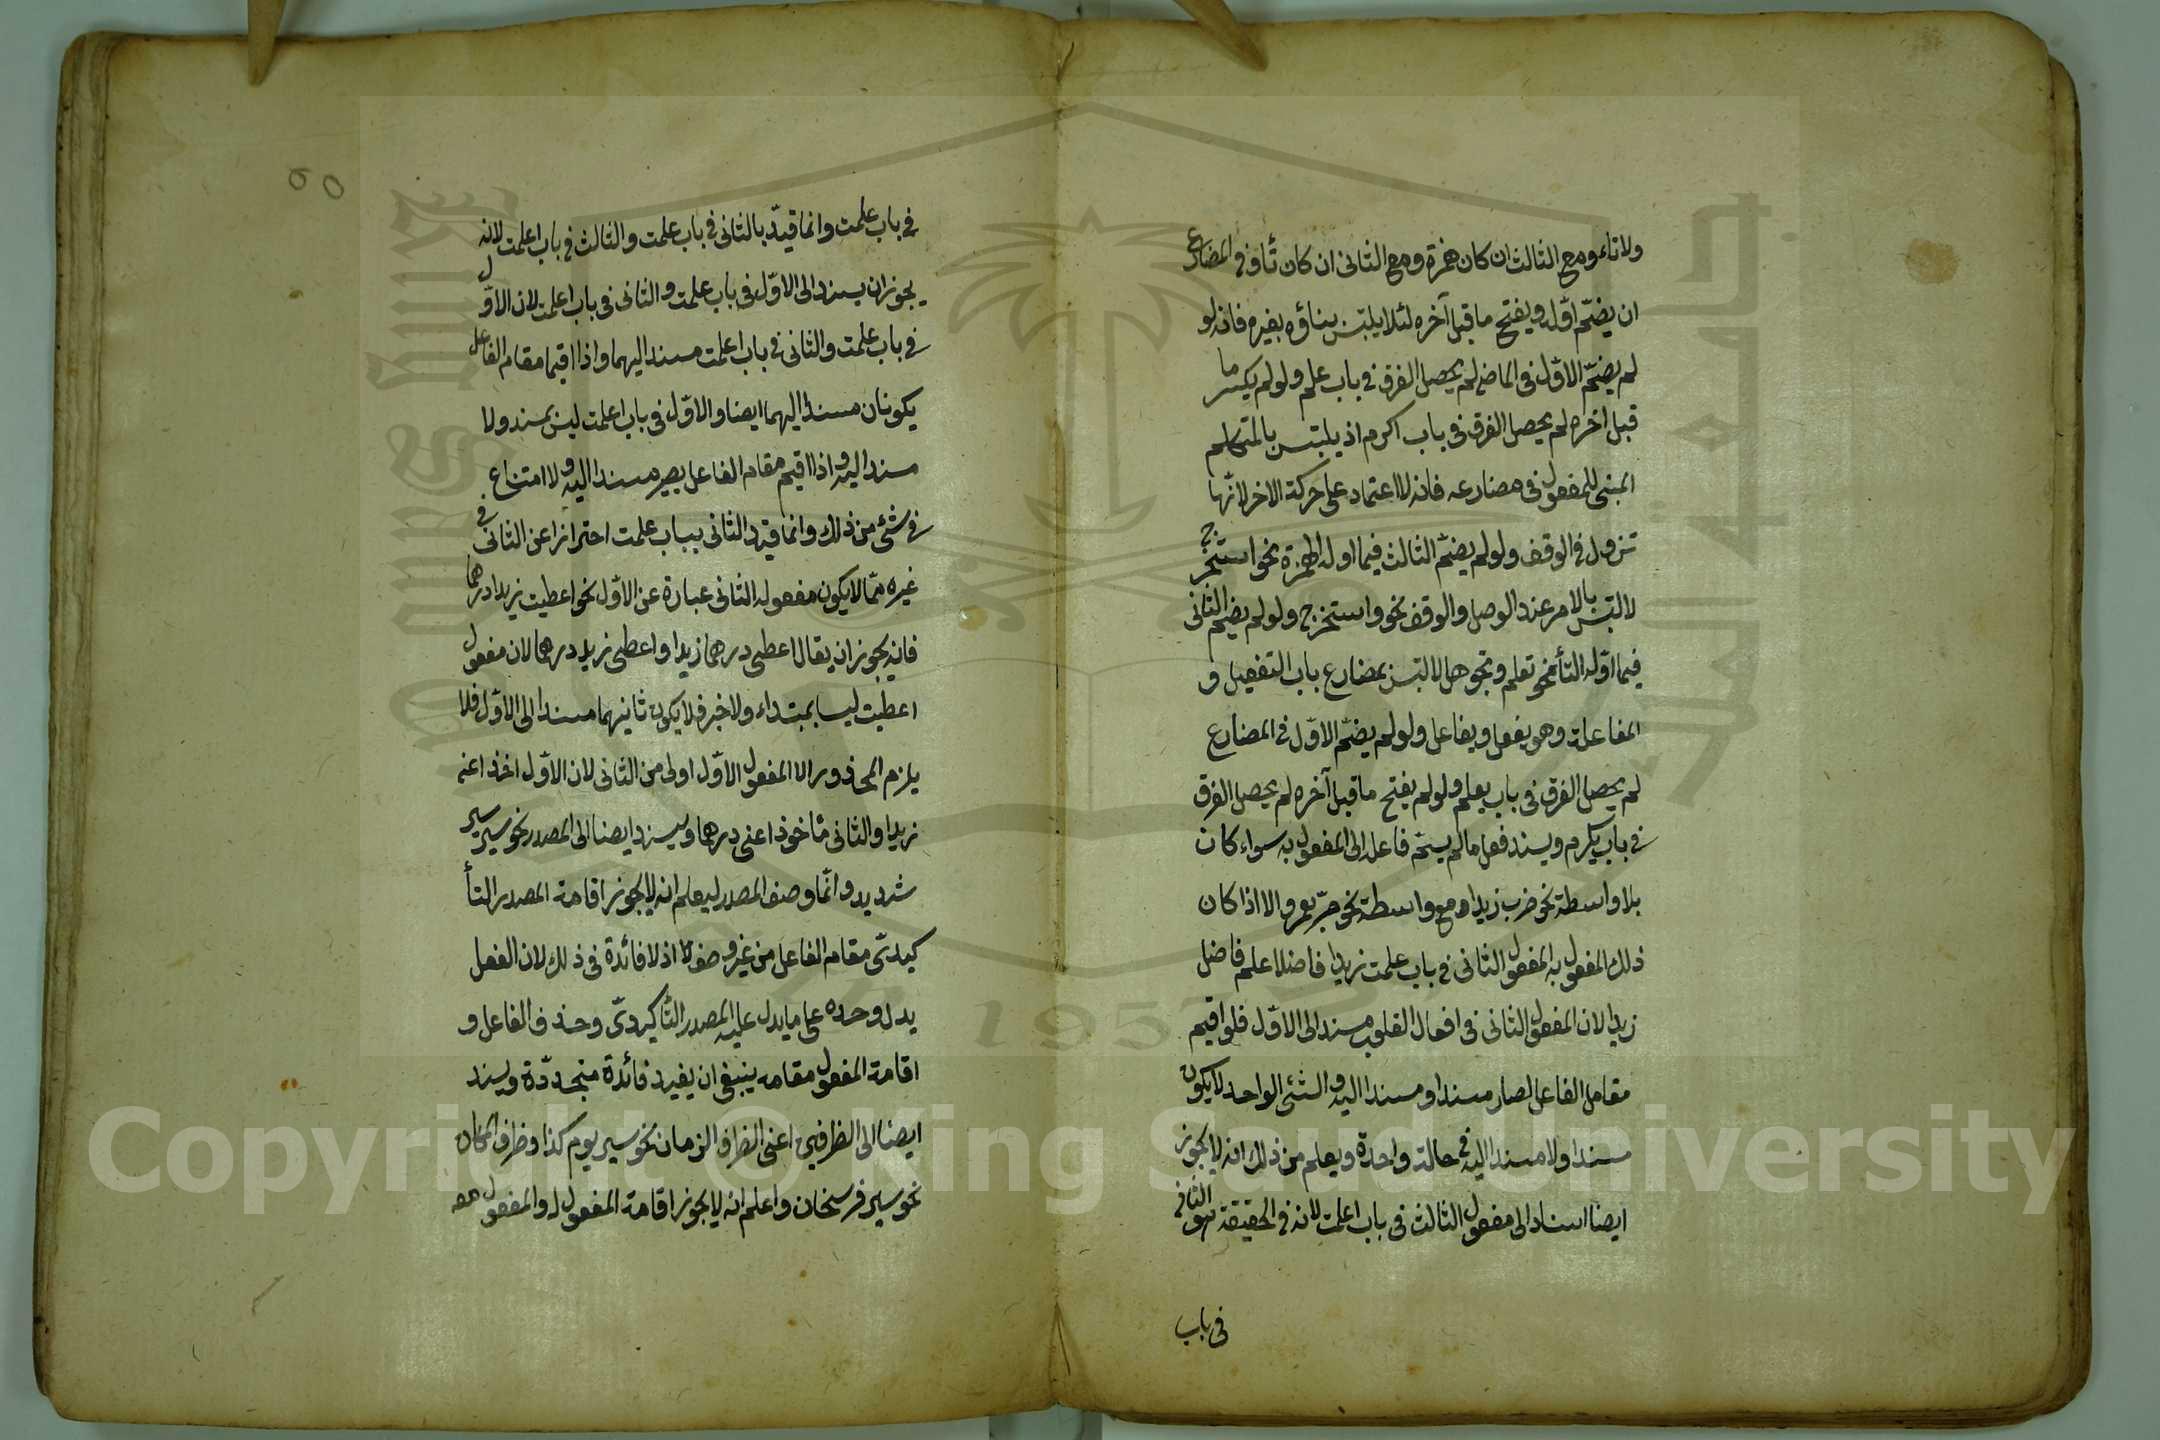 ولا تاء ومع الثالث ان كان همزة ومع الثانى ان كان تأ وفى المضارع
ان يضمّ اوّله ويفتح ما قبل آخره لئلا يلتبس بناؤه بغيره فانه لو
لم يضمّ الاوّل فى الماضى لم يحصل الفرق فى باب علم ولو لم يكسر ما
قبل اخره لم يحصل الفرق فى باب اكرم اذ يلتبس بالمتكلم
المبنى للمفعول فى مضارعه فانه لا اعتماد على حركة الاخر لانّها
تزول فى الوقف ولو لم يضمّ الثالث فيما اوله الهمزة نحو استخرج
لالتبس بالامر عند الوصل والوقف نحو واستخرج ولو لم يضم الثانى
فيما اوّله التأ نحو تعلم وتجوهل لالتبس بمضارع باب التفعيل و
المفاعلة وهو يفعل ويفاعل ولو لم يضمّ الاوّل فى المضارع
لم يحصل الفرق فى باب يعلم ولو لم يفتح ما قبل آخره لم يحصل الفرق
فى باب يكرم ويسند فعل ما لم يسمّ فاعله الى المفعول به سواء كان
بلا واسطة نحو ضرب زيد او مع واسطة نحو مرّ بعمرو الا اذا كان
ذلك المفعول به المفعول الثانى فى باب علمت زيدا فاضلا علم فاضل
زيدا لان المفعول الثانى فى افعال القلوب مسند الى الاوّل فلو اقيم
مقام الفاعل لصار مسندا ومسندا اليه والشئ الواحد لا يكون
مسندا ولا مسندا اليه فى حالة واحدة ويعلم من ذلك انه لا يجوز
ايضا اسناد الى مفعول الثالث فى باب اعلمت لانه فى الحقيقة هو الثانى
فى باب
فى باب علمت وانما قيدّ بالثانى فى باب علمت والثالث فى باب اعلمت لانه
يجوز ان يسند الى الاوّل فى باب علمت والثانى فى باب اعلمت لان الاوّل
فى باب علمت والثانى فى باب اعلمت مسند اليهما واذا اقيما مقام الفاعل
يكونان مسندا اليهما ايضا والاوّل فى باب اعلمت ليس بمسند ولا
مسند اليه واذا اقيم مقام الفاعل يصير مسندا اليه ولا امتناع
فى شئ من ذلك وانما قيد الثانى بباب علمت احترازا عن الثانى فى
غيره ممّا لا يكون مفعوله الثانى عبارة عن الاوّل نحو اعطيت زيدا درهما
فانه يجوز ان يقال اعطى درهما زيدا واعطى زيد درهما لان مفعول
اعطيت ليسا بمبتداء ولا خبر فلا يكون ثانيهما مسندا الى الاوّل فلا
يلزم المحذور الا المفعول الاوّل اولى من الثانى لان الاوّل اخذ اعنى
زيدا والثانى مأخوذ اعنى درهما ويسند ايضا الى المصدر نحو سير سير
شديد وانّما وصف المصدر ليعلم انه لا يجوز اقامة المصدر التأ
كيدىّ مقام الفاعل من غير وصف لا اذ لا فائدة فى ذلك لان الفعل
يدل وحده على ما يدل عليه المصدر التّاكيدىّ وحذف الفاعل و
اقامة المفعول مقامه ينبغى ان يفيد فائدة متجدّدة ويسند
ايضا الى الظرفين اعنى الظرف الزمان نحو سير يوم كذا وظرف المكان
نحو سير فرسخان واعلم انه لا يجوز اقامة المفعول له والمفعول معه
Copyright © King Saud University
1957